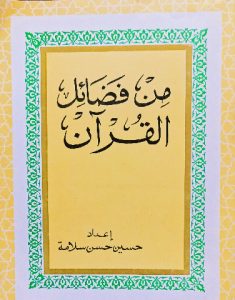 مِن فَضَائِل
القُرآن
إعداد
حسين حسن سلامة